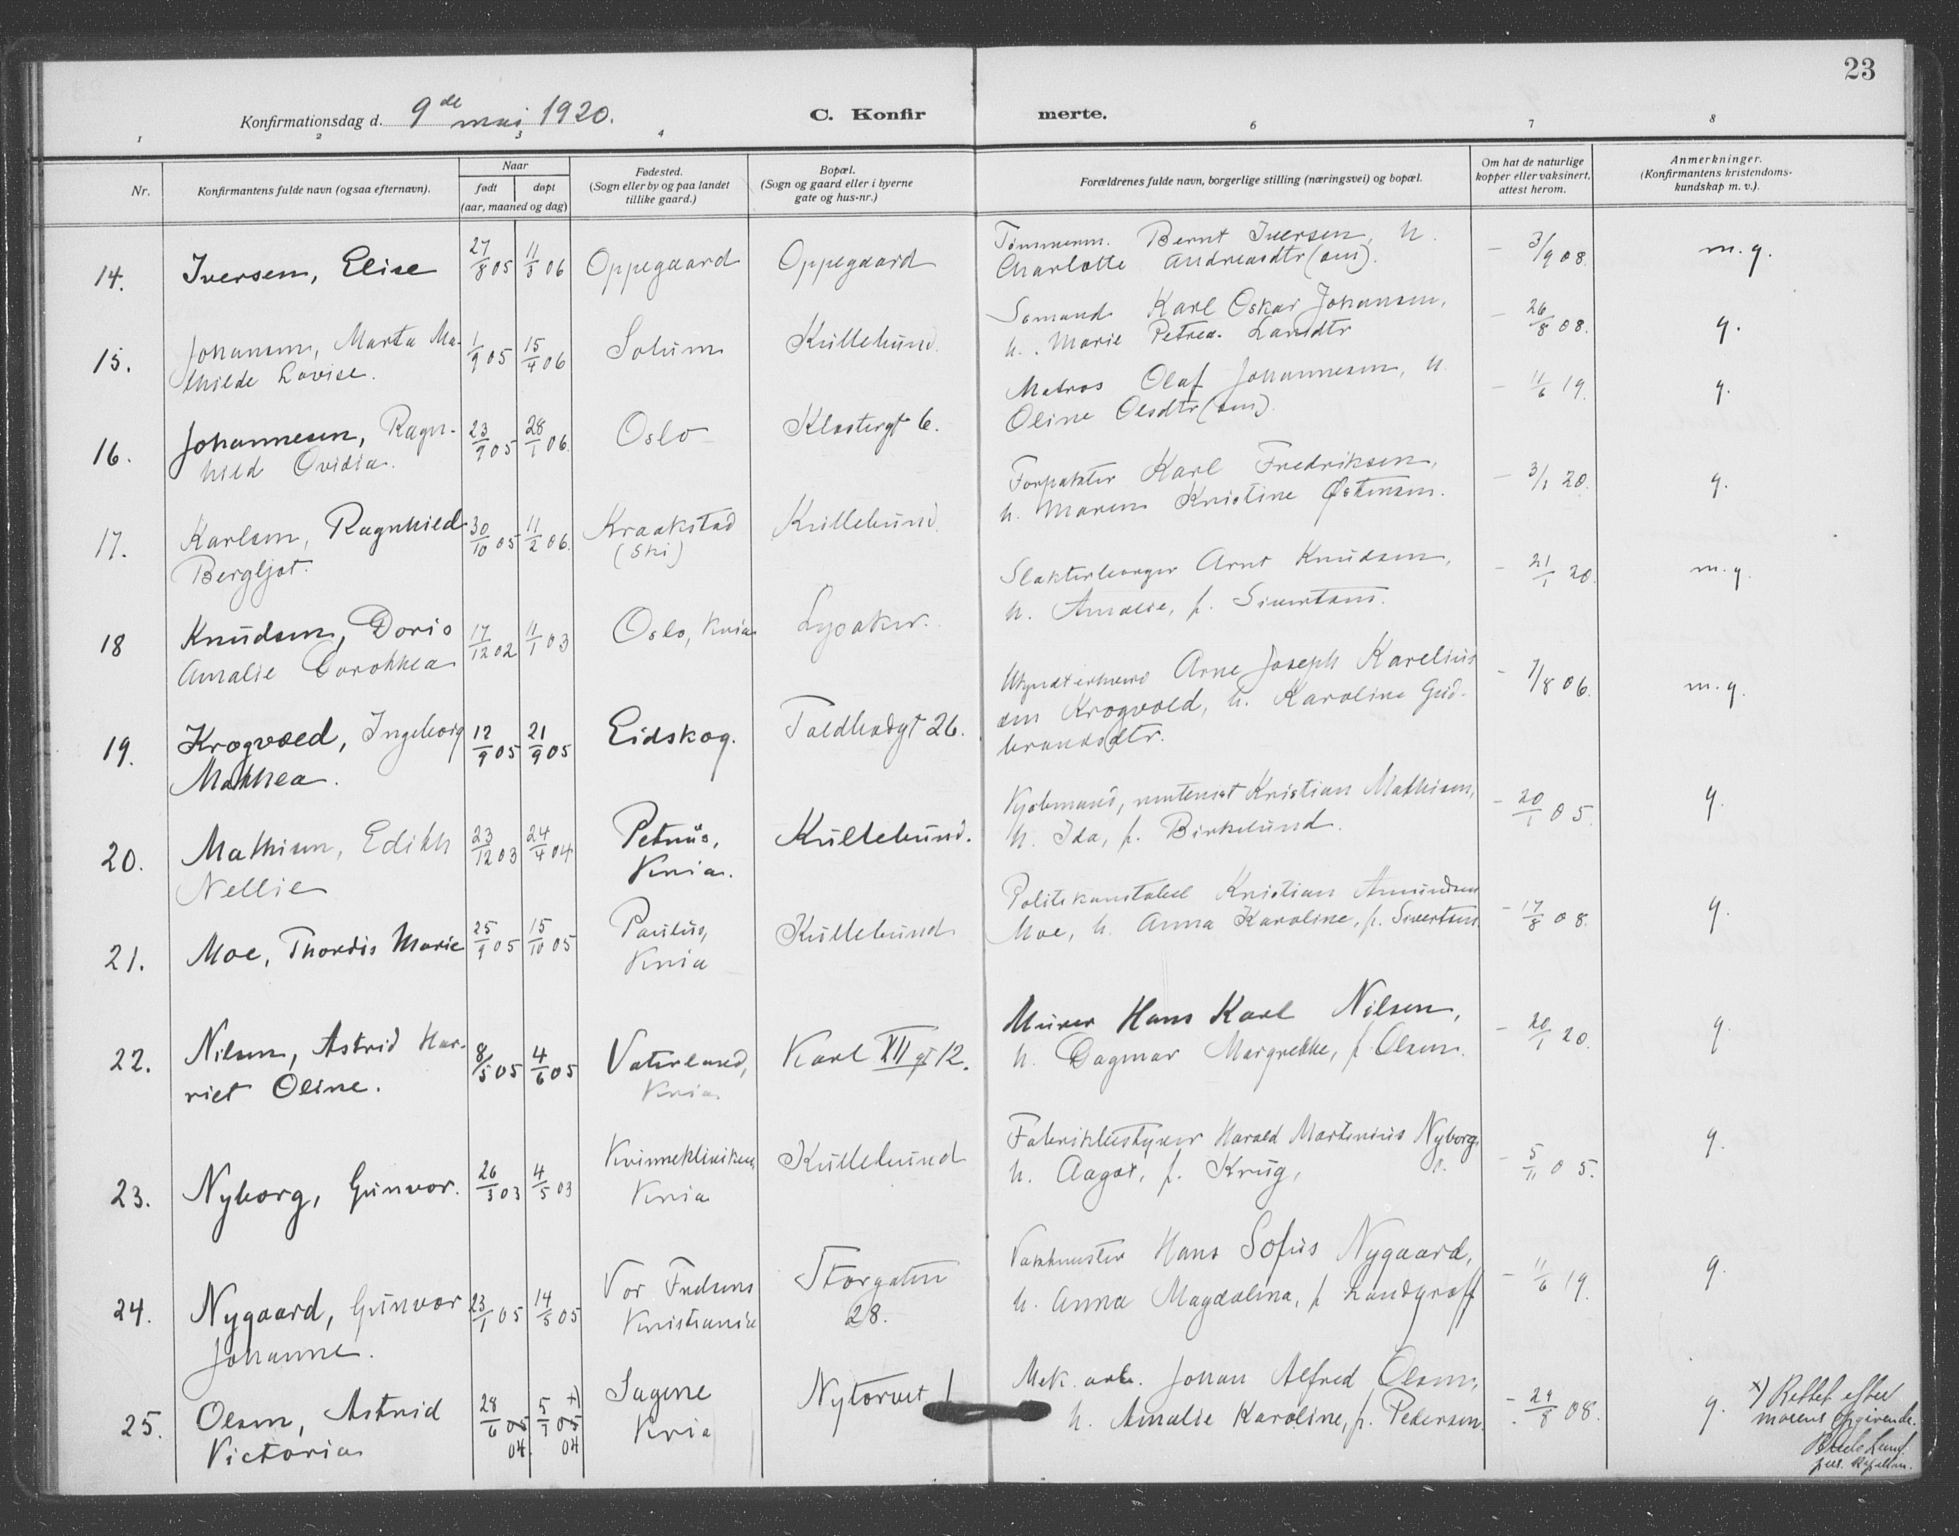 23
Konfirmationsdag d. 9de mai 1920.
C. Konfirmerte.
1 2 3 4 6 7 8
Nr.
Konfirmantens fulde navn (ogsaa efternavn).
Naar
født døpt
(aar, maaned og dag)
Fødested.
(Sogn eller by og paa landet
tillike gaard.)
Bopæl.
(Sogn og gaard eller i byerne
gate og hus-nr.)
Forældrenes fulde navn, borgerlige stilling (næringsvei) og bopæl.
Om hat de naturlige
kopper eller vaksinert,
attest herom.
Anmerkninger.
(Konfirmantens kristendoms-
kundskap m. v.).
14. Iversen, Elise 27/8 05 11/3 06 Oppegaard Oppegaard
Tømmerm. Bernt Iversen, h.
Charlotte Andreasdtr (om).
– 3/9 08. m.g.
15. Johansen, Marta Ma-
thilde Lovise.
1/9 05 15/4 06 Solum Kullebund.
Sømand Karl Oskar Johansen,
h. Marie Petrea Larsdtr
– 26/8 08. g.
16. Johannesen, Ragn-
hild Ovidia.
23/9 05 28/1 06. Oslo Klostergt 6.
Matros Olaf Johannesen, h.
Oline Olsdtr (om).
– 11/6 19. g.
17. Karlsen, Ragnhild
Bergljot.
30/10 05 11/2 06. Kraakstad
(Ski)
Kullebund.
Forpakter Karl Fredriksen,
h. Maren Kristine Østensen.
– 3/1 20. g.
18 Knudsen, Doris
Amalie Dorothea
17/12 02 11/1 03 Oslo, Kria Lysaker.
Slakterborger Arnt Knudsen,
h. Amalie, f. Sivertsen.
– 21/1 20. m.g.
19. Krogvold, Ingeborg
Mathea.
12/9 05 21/9 05 Eidskog. Toldbodgt 26.
Arne Joseph Karelius
sen Krogvold, h. Karoline Gud-
brandsdtr.
– 7/8 06. m.g.
20. Mathisen, Edith
Nellie
23/12 03 24/4 04 Petrus,
Kria.
Kullebund.
Kjøbmand, rentenist Kristian Mathisen,
h. Ida, f. Birkelund.
– 20/1 05. g.
21. Moe, Thordis Marie 25/9 05 15/10 05 Paulus,
Kria
Kullebund
Politikonstabel Kristian Amundsen
Moe, h. Anna Karoline, f. Sivertsen.
– 17/8 08. g.
22. Nilsen, Astrid Har-
riet Oline.
8/5 05 4/6 05 Vaterland,
Kria.
Karl XII gt 12.
Murer Hans Karl Nilsen,
h. Dagmar Margrethe, f. Olsen.
– 20/1 20. g
23. Nyborg, Gunvor. 26/3 03 4/5 03 Kvinneklinikken,
Kria
Kullebund
Fabrikbestyrer Harald Martinius Nyborg
h. Aagot, f. Krug,
– 5/11 05. g.
24. Nygaard, Gunvor
Johanne.
23/1 05 14/5 05 Vor Frelsers
Kristiania
Storgaten
28.
Vaktmester Hans Sofus Nygaard,
h. Anna Magdalina, f. Landgraff
– 11/6 19. g.
25. Olsen, Astrid
Victoria
28/6 05 5/7 05 x)
04. 04
Sagene
Kria
Nytorvet 1
Mek. arb. Johan Alfred Olsen,
h. Amalie Karoline, f. Pedersen.
– 29/8 08. g. x) Rettet efter
morens opgivende.